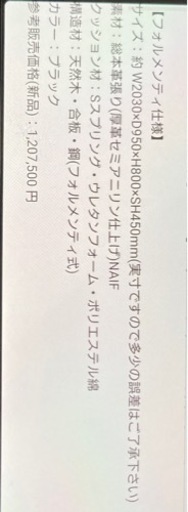 【フォルメンティ仕様】
サイズ：約 W2030×D950×H800×SH450mm(実寸ですので多少の誤差はご了承下さい)
素材：総本革張り(厚革セミアニリン仕上げ)NAIF
クッション材：Sスプリング・ウレタンフォーム・ポリエステル綿
構造材：天然木・合板・鋼(フォルメンティ式)
カラー：ブラック
参考販売価格(新品)：1,207,500円